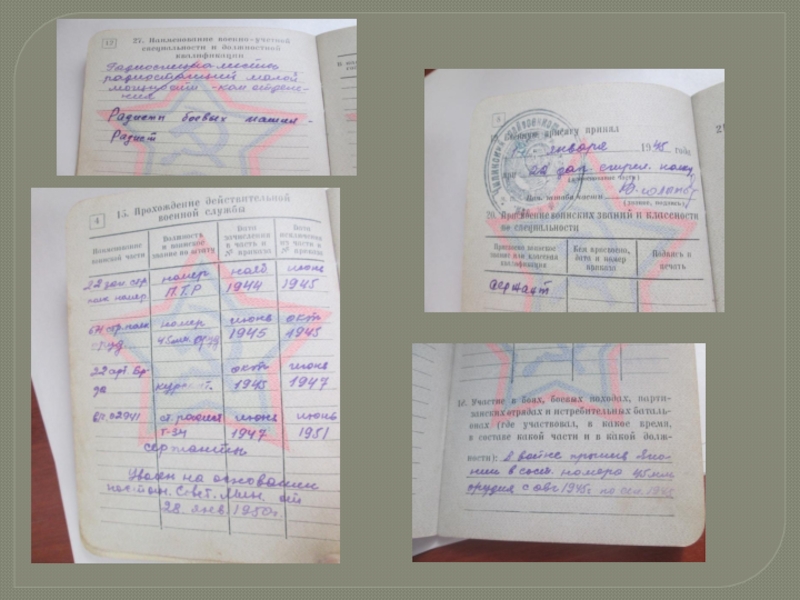 12
27. Наименование военно-учетной
специальности и должностной
квалификации
радиостанций малой
мощности -ком отделе-
ния
Радисты боевых машин -
Радист
4
15. Прохождение действительной
военной службы
Наименование
воинской части
Должность
и воинское
звание по штату
Дата
зачисления
в часть и
№ приказа
Дата
исключения
из части и
№ приказа
22 зап. стр.
полк номер
номер
П.Т.Р
нояб
1944
июнь
1945
номер
45мм. оруд
июнь
1945
окт
1945
22 арт. Бр-
да
курсант.
окт
1945
июнь
1947
ст. радист
Т-34
сержантик
июнь
1947
июнь
1951
Уволен на основании
пос-тан. Совет. Мин. от
28 янв. 1950г.
8
Военную присягу принял
января 1945 года
при 22 зап. стрел. полку
(наименование части)
20. Присвоение воинских званий и классности
по специальности
Присвоено воинское
звание или классная
квалификация
Кем присвоено,
дата и номер
приказа
Подпись и
печать
сержант
16. Участие в боях, боевых походах, парти-
занских отрядах и истребительных баталь-
онах (где участвовал, в какое время,
в составе какой части и в какой долж-
ности): В войне против Япо-
нии в сост. номера 45 мм
орудия с авг 1945г по сен. 1945